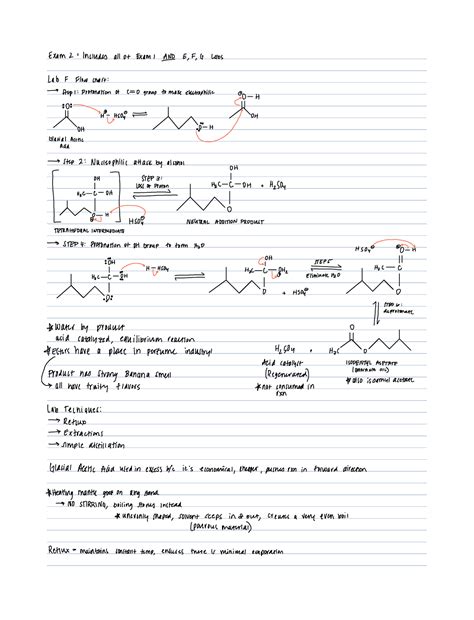 Exam 2 - Includes all of Exam 1 AND E, F, G Labs
Lab F Flow chart:
→ Step 1: Protonation of C=O group to make electrophilic
:O: H HSO4 O-H
OH O-H OH
Glacial Acetic
Acid
→ Step 2: Nucleophilic attack by alcohol
OH STEP 3: OH
H3C-C-OH Loss of Proton H3C-C-OH + H2SO4
O H HSO4 O
TETRAHEDRAL INTERMEDIATE NEUTRAL ADDITION PRODUCT
→ STEP 4: Protonation of OH Group to form H2O
:OH OH HSO4 O-H
H3C-C-OH H-HSO4 H3C-C-OH2 STEP 5 H3C-C
O O + HSO4 eliminate H2O O
Step 6:
deprotonate
*Water by product
acid catalyzed, equilibrium reaction
*Esters have a place in perfume industry! H2SO4 + H3C O
Product has strong banana smell Acid catalyst ISOPENTYL ACETATE
→ all have fruity flavors (Regenerated) (banana oil)
*not consumed in *also isoamyl acetate
rxn
Lab Techniques:
→ Reflux
→ extractions
→ simple distillation
Glacial Acetic Acid used in excess b/c it's economical, cheaper, pushes rxn in forward direction
*Heating mantle goes on ring stand
→ NO STIRRING, boiling stones instead
*unevenly shaped, solvent seeps in & out, creates a very even boil
(porous material)
Reflux - maintains constant temp, ensures there is minimal evaporation